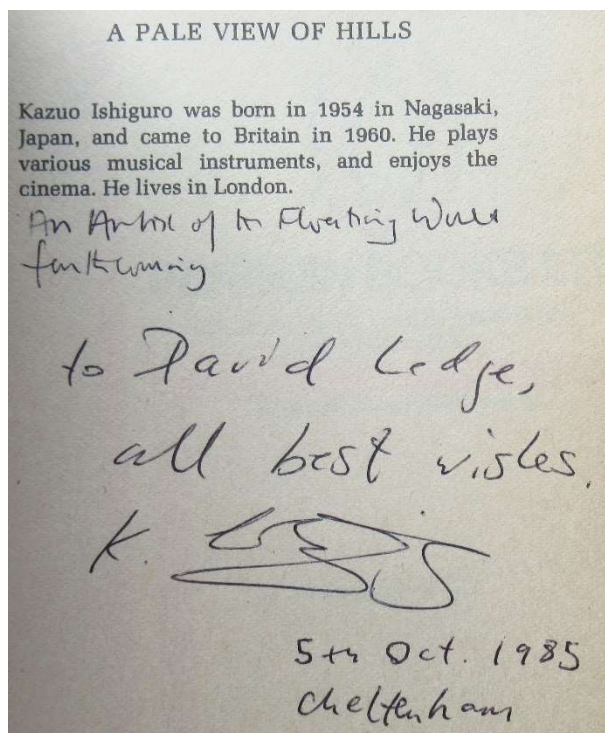 A PALE VIEW OF HILLS
Kazuo Ishiguro was born in 1954 in Nagasaki,
Japan, and came to Britain in 1960. He plays
various musical instruments, and enjoys the
cinema. He lives in London.
An Artist of the Floating World
forthcoming
to David Lodge,
all best wishes.
K.
5th Oct. 1985
Cheltenham